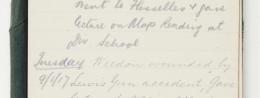 Went to Flesselles & gave
lecture on Map Reading at
Div. School
Tuesday Weedon wounded by
9/1/17 Lewis Gun accident. Gave